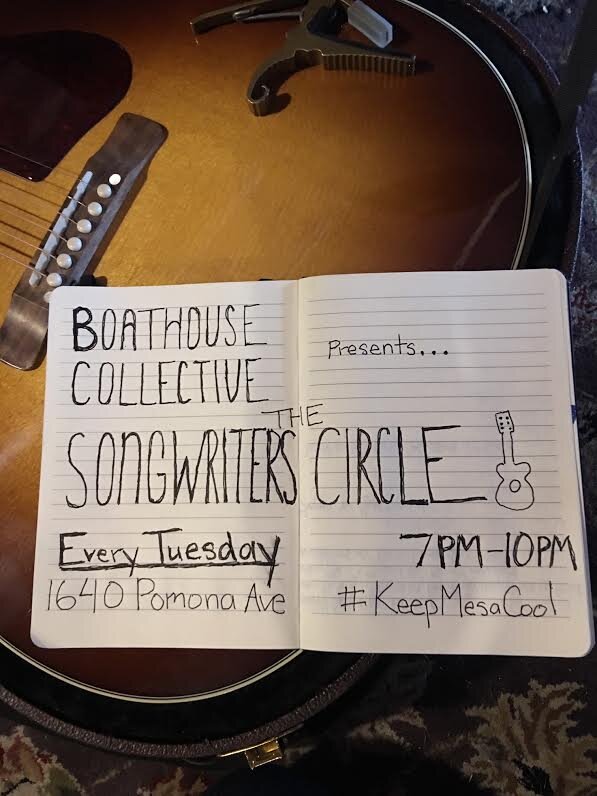 BOATHOUSE
COLLECTIVE
Presents...
THE
SONGWRITERS CIRCLE
Every Tuesday
7PM-10PM
1640 Pomona Ave
#KeepMesaCool